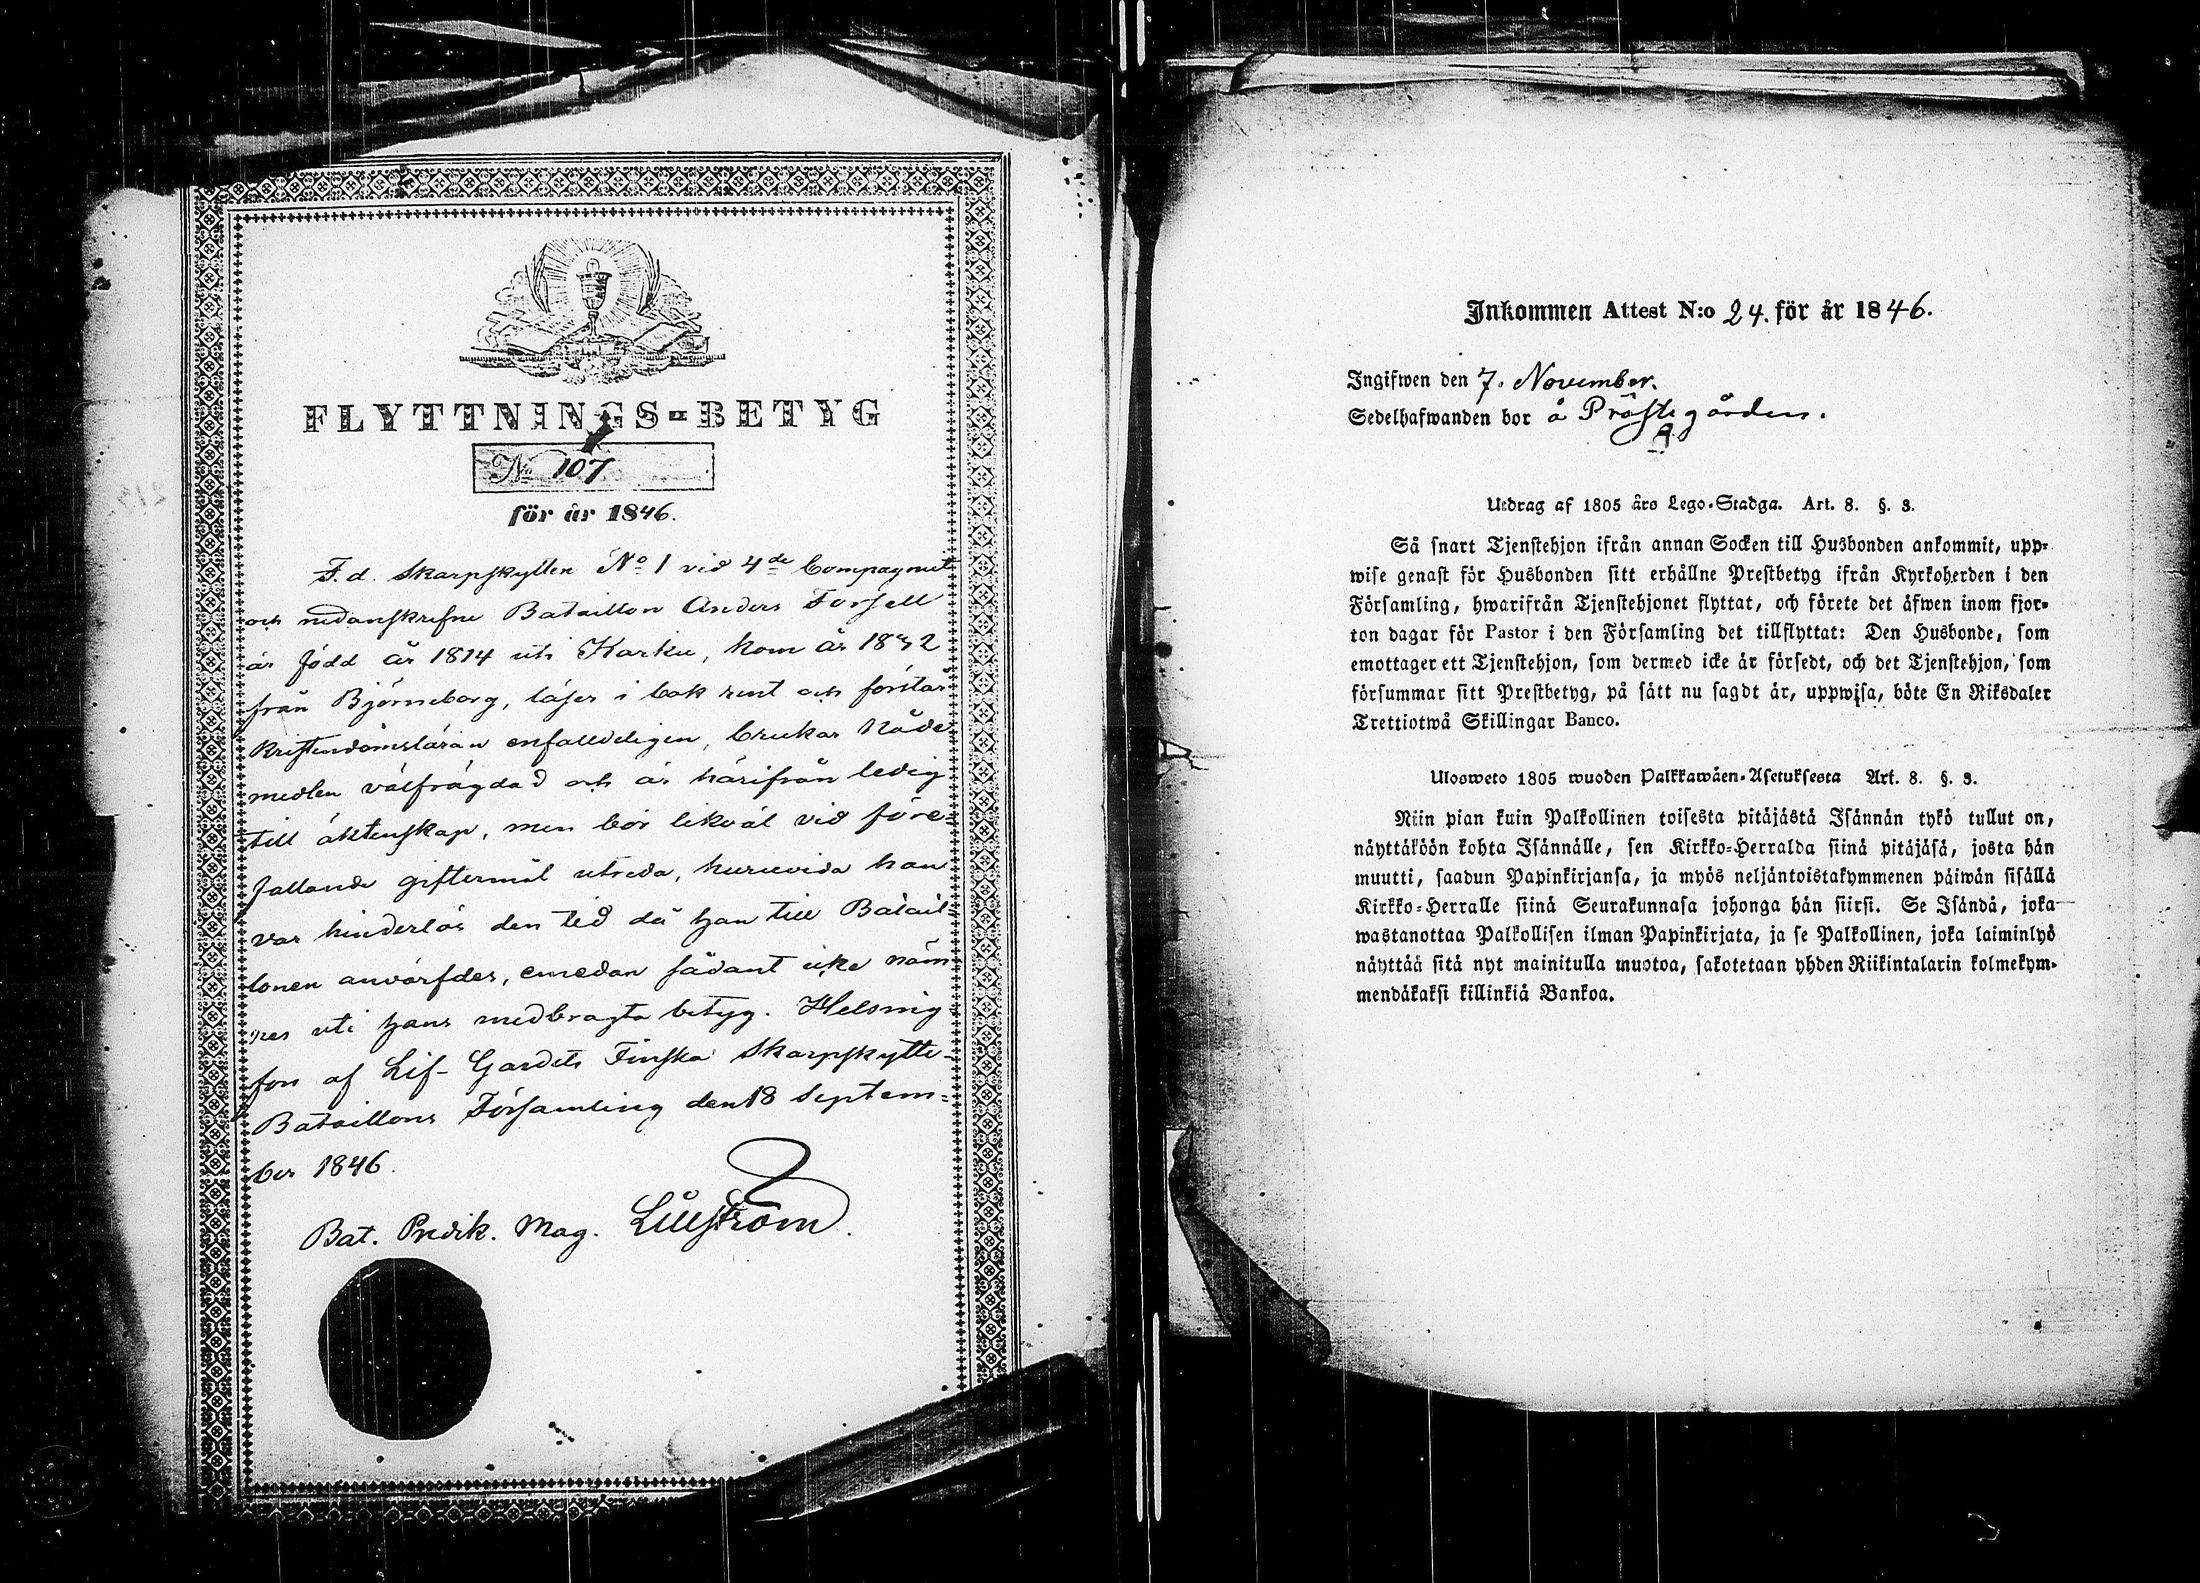 FLYTTNINGS-BETYG
No 107
för år 1846.
F. d. Skarpskytten No 1 vid 4de Compagniet
och nedanskrefne Bataillon Anders Forsell
är född år 1814 uti Karku, kom år 1832
från Björneborg, läser i bok rent och förstår
Kristendomsläran enfalldeligen, brukar Nåde
medlen välfrägdad och är härifrån ledig
till äktenskap, men bör likväl vid före-
fallande giftermål utreda, huruvida han
var hinderlös den tid då han till Batail-
lonen anvärfdes, emedan sådant icke näm-
nes uti hans medbragta betyg. Helsing-
fors af Lif-Gardets Finska Skarpskytte-
Bataillons Församling den 18 Septem-
ber 1846.
Bat. Predik. Mag. Lillström.
Inkommen Attest N:o 24. för år 1846.
Ingifwen den 7. November.
Sedelhafwanden bor å Prästegården.
Utdrag af 1805 års Lego-Stadga. Art. 8. §. 3.
Så snart Tjenstehjon ifrån annan Socken till Husbonden ankommit, upp-
wise genast för Husbonden sitt erhållne Prestbetyg ifrån Kyrkoherden i den
Församling, hwarifrån Tjenstehjonet flyttat, och förete det äfwen inom fjor-
ton dagar för Pastor i den Församling det tillflyttat: Den Husbonde, som
emottager ett Tjenstehjon, som dermed icke är försedt, och det Tjenstehjon, som
försummar sitt Prestbetyg, på sätt nu sagdt är, uppwisa, böte En Riksdaler
Trettiotwå Skillingar Banco.
Ulosweto 1805 wuoden Palkkawäen-Asetuksesta Art. 8. §. 3.
Niin pian kuin Palkollinen toisesta pitäjästä Isännän tykö tullut on,
näyttäköön kohta Isännälle, sen Kirkko-Herralda siinä pitäjäsä, josta hän
muutti, saadun Papinkirjansa, ja myös neljäntoistakymmenen päiwän sisällä
Kirkko-Herralle siinä Seurakunnasa johonga hän siirsi. Se Isändä, joka
wastanottaa Palkollisen ilman Papinkirjata, ja se Palkollinen, joka laiminlyö
näyttää sitä nyt mainitulla muotoa, sakotetaan yhden Riikintalarin kolmekym-
mendäkaksi killinkiä Bankoa.